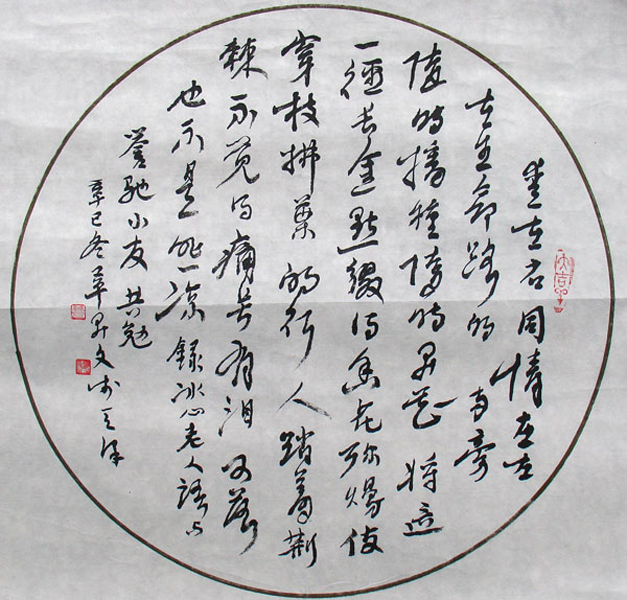 爱在右同情在左
在生命路的两旁
随时播种随时开花将这
一径长途点缀得香花弥漫使
穿枝拂叶的行人踏着荆
棘不觉得痛苦有泪可落
也不是悲凉 录冰心老人语与
驰小友共勉
辛巳冬